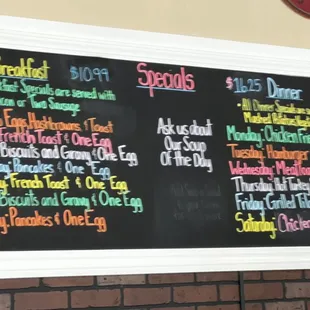 Specials
Breakfast $10.99
kfast Specials are served with
con or Two Sausage
Eggs, Hashbrowns & Toast
French Toast & One Egg
Biscuits and Gravy & One Egg
y: Pancakes & One Egg
y: French Toast & One Egg
Biscuits and Gravy & One Egg
y: Pancakes & One Egg
Ask us about
Our Soup
Of the Day
$16.25 Dinner
- All Dinner Specials
Mashed Potatoes
Monday: Chicken Fri
Tuesday: Hamburger
Wednesday: Meatloa
Thursday: Hot Turkey
Friday: Grilled
Saturday: Chicke